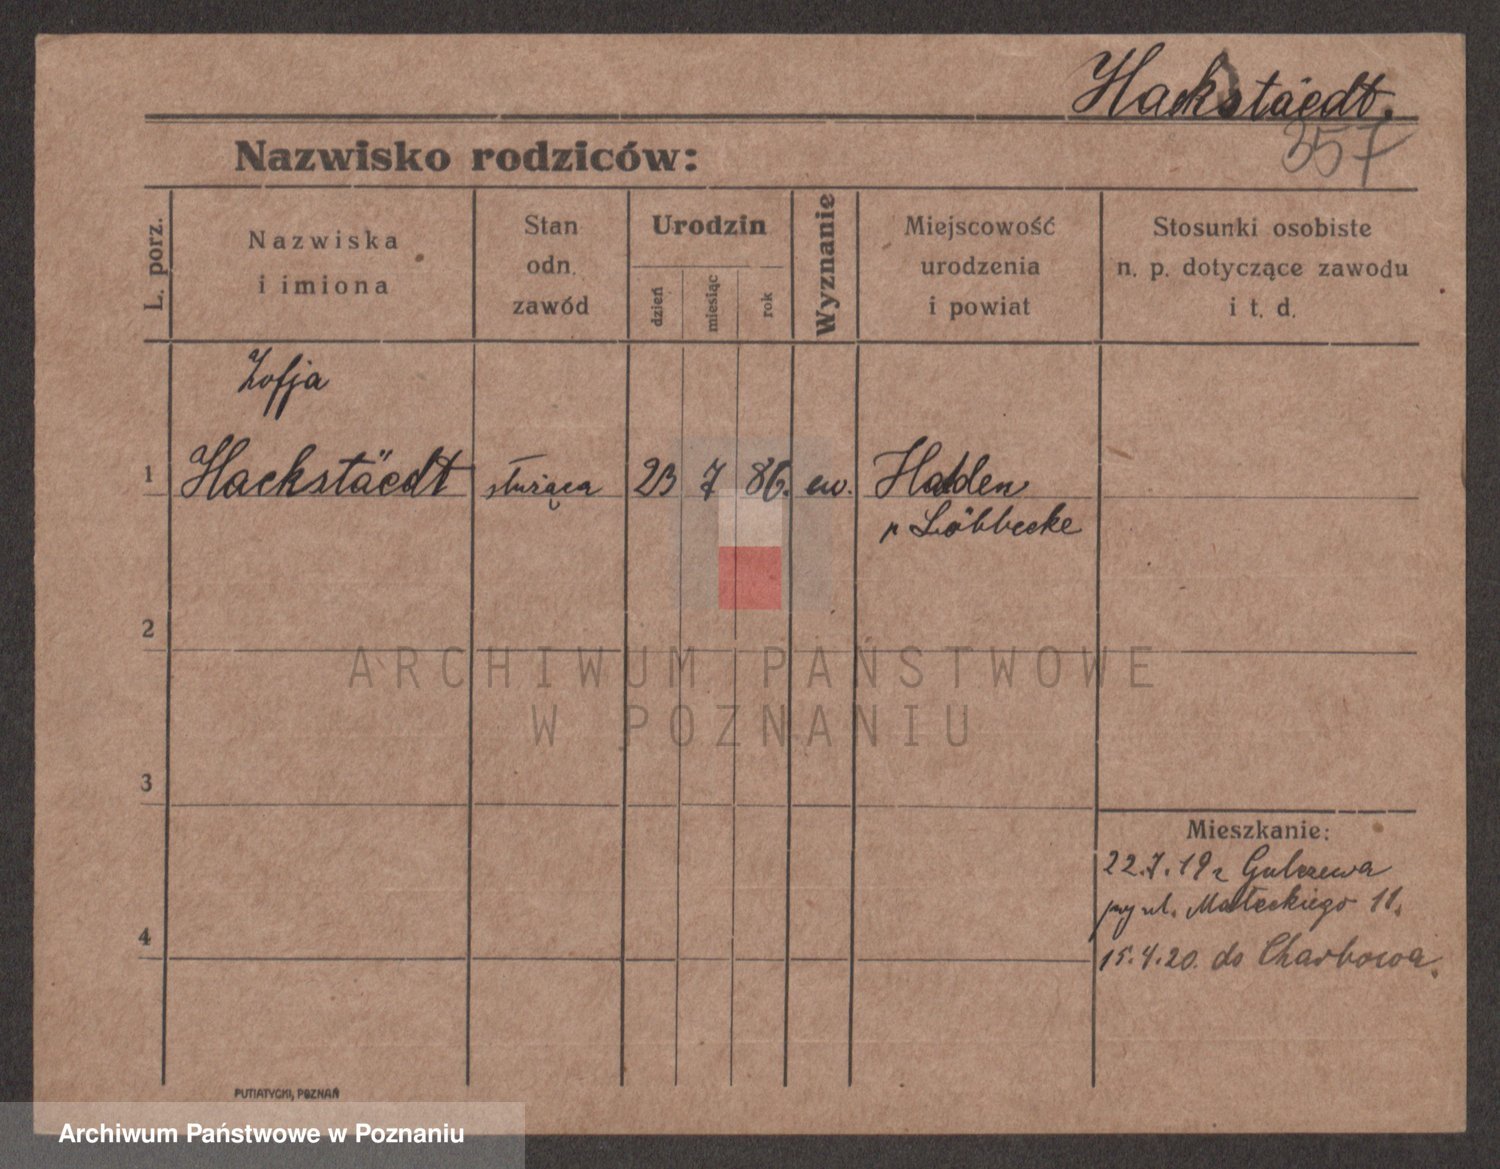 Hackstäedt.
357
Nazwisko rodziców:
L. porz.
Nazwiska
i imiona
Stan
odn.
zawód
Urodzin
dzień
miesiąc
rok
Wyznanie
Miejscowość
urodzenia
i powiat
Stosunki osobiste
n. p. dotyczące zawodu
i t. d.
Zofja
1 Hackstäedt służąca 23 7 86. ew. Halden
p Löbbecke
2
ARCHIWUM PAŃSTWOWE
W POZNANIU
3
Mieszkanie:
22.7.19 z Gulczewa
przy ul. Małeckiego 11.
4
15.4.20. do Charbowa.
PUTIATYCKI, POZNAŃ
Archiwum Państwowe w Poznaniu